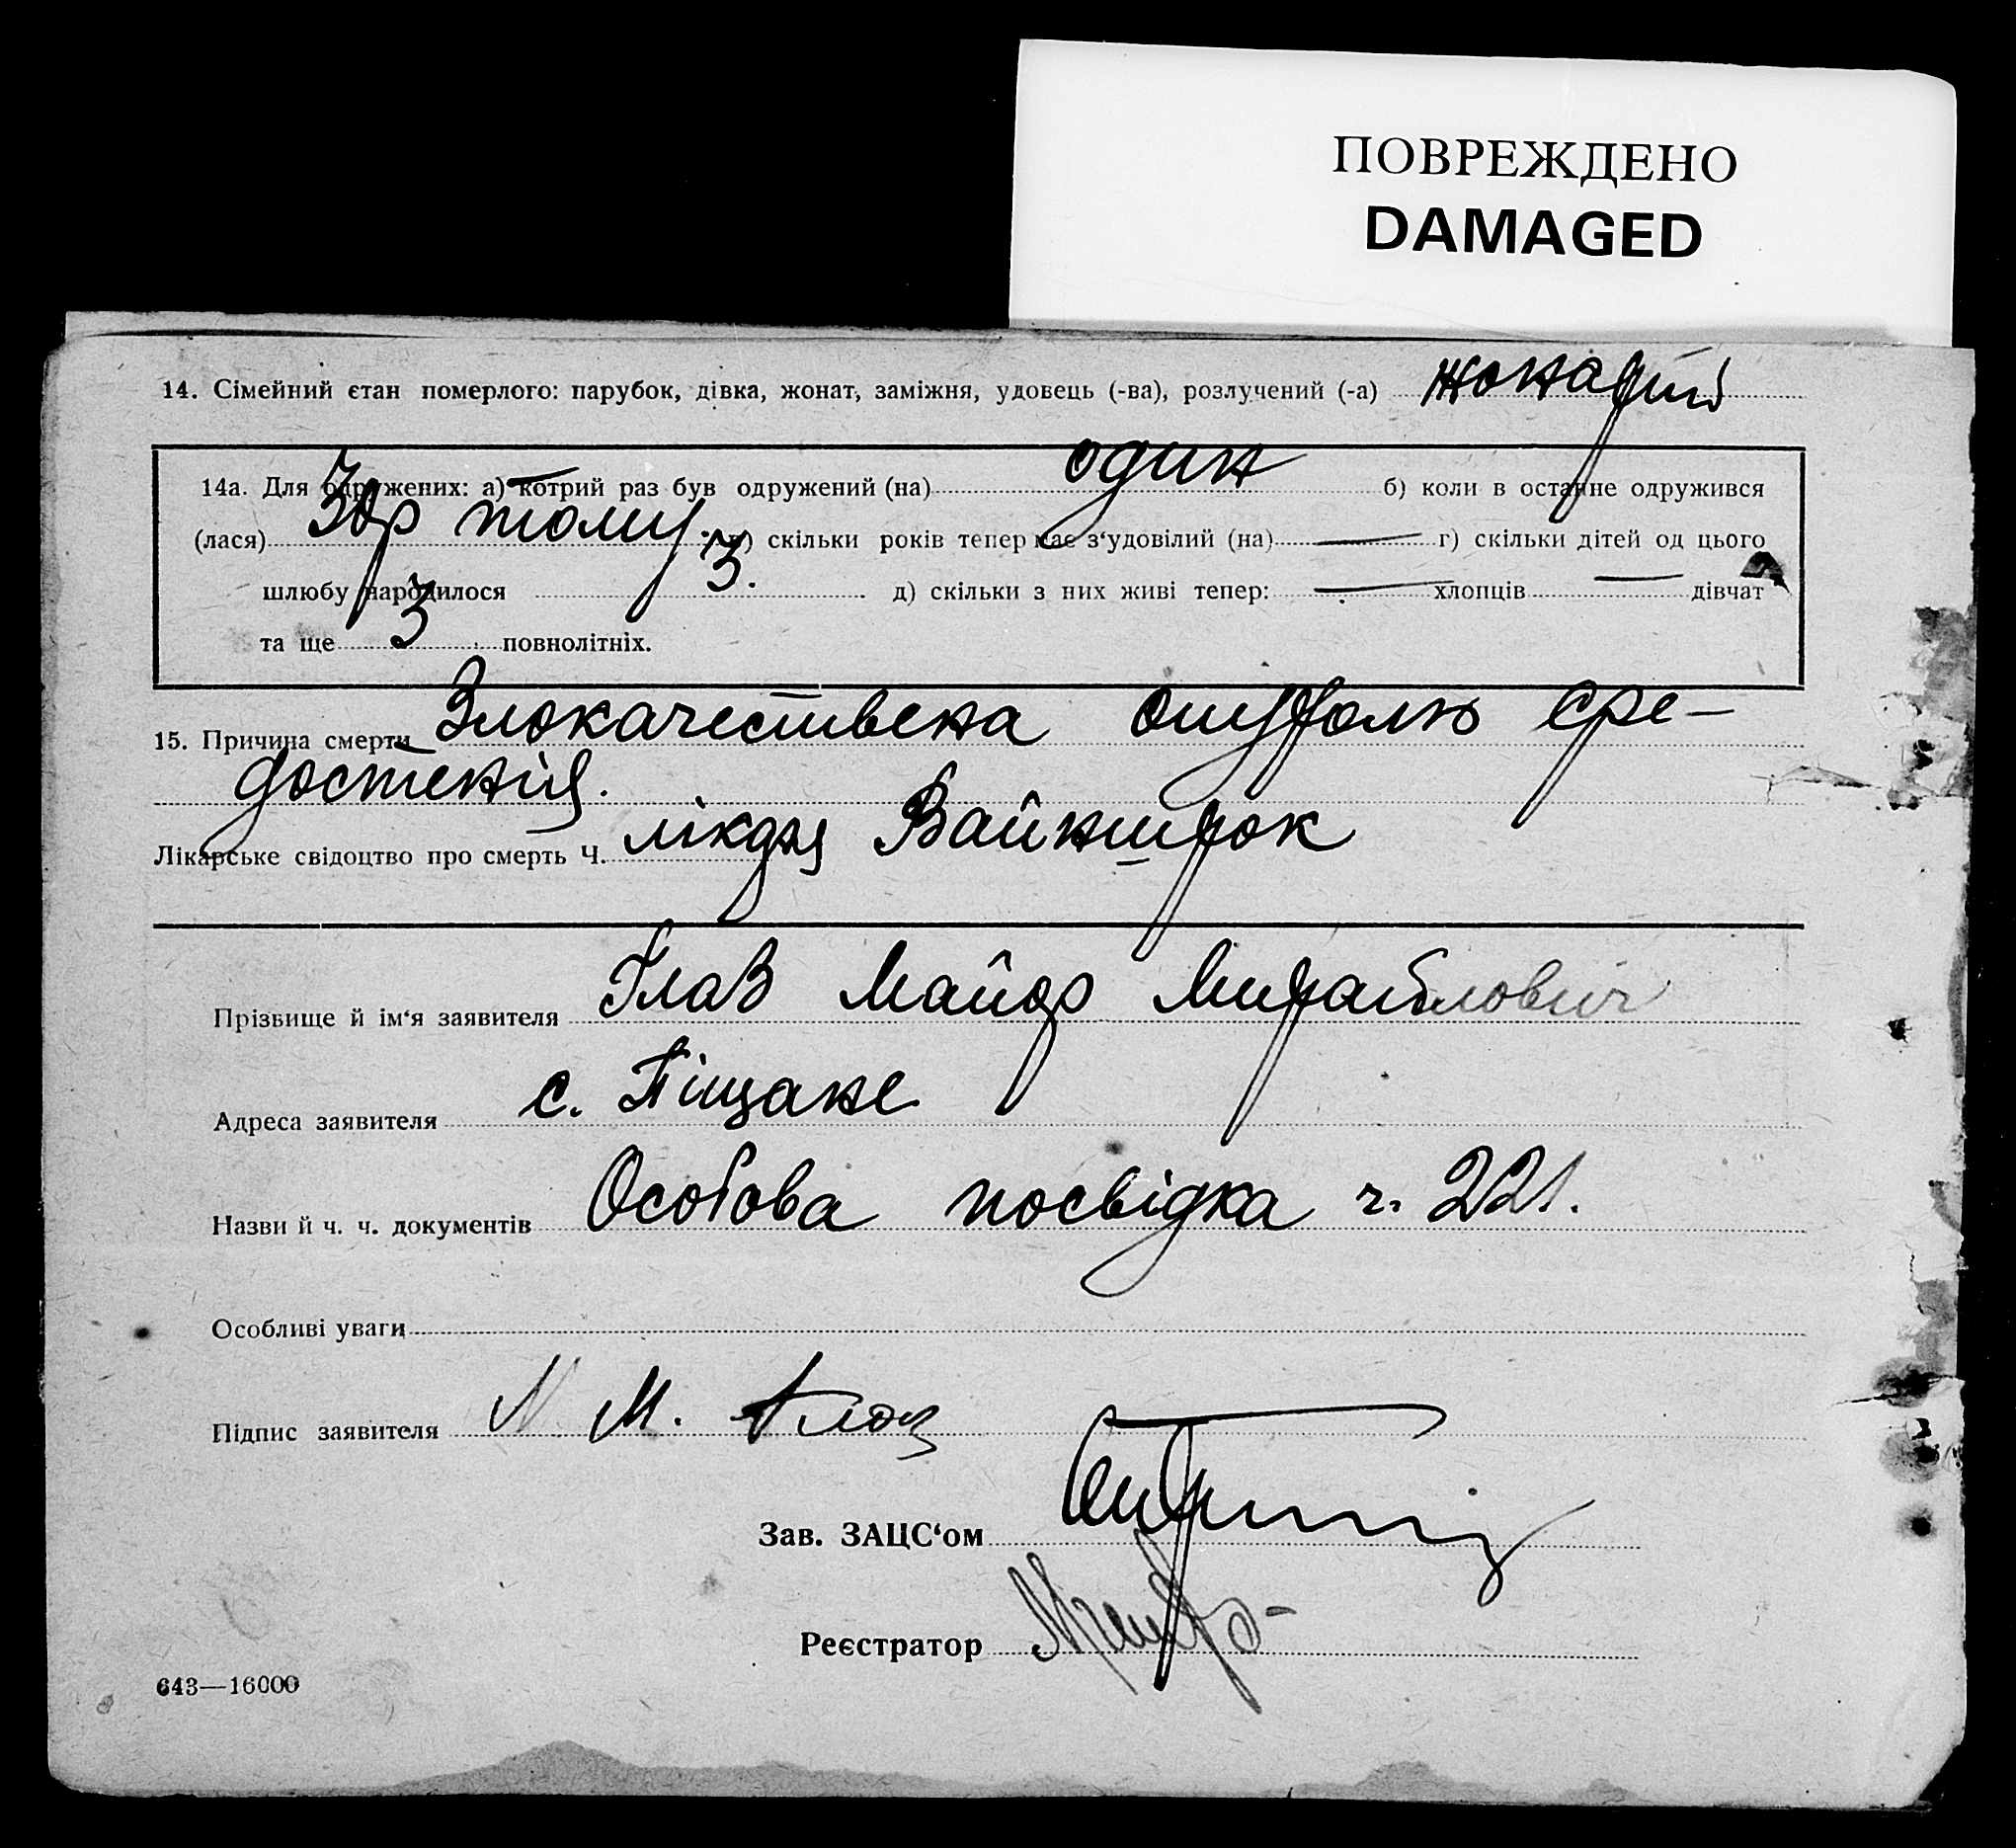 ПОВРЕЖДЕНО
DAMAGED
14. Сімейний єтан померлого: парубок, дівка, жонат, заміжня, удовець (-ва), розлучений (-а) жонатий
14а. Для одружених: а) котрий раз був одружений (на) один б) коли в останнє одружився
(лася) 30р тому. в) скільки років тепер має з‘удовілий (на) — г) скільки дітей од цього
шлюбу народилося 3. д) скільки з них живі тепер: — хлопців — дівчат
та ще 3 повнолітніх.
15. Причина смерти Злокачествена опухоль сре-
достенія.
Лікарське свідоцтво про смерть Ч. лікаря Вайншток
Прізвище й ім‘я заявителя Глаз Майор Михайлович
Адреса заявителя с. Піщане
Назви й ч. ч. документів Особова посвідка ч. 221.
Особливі уваги
Підпис заявителя М. М.
Зав. ЗАЦС‘ом
Реєстратор
643—16000